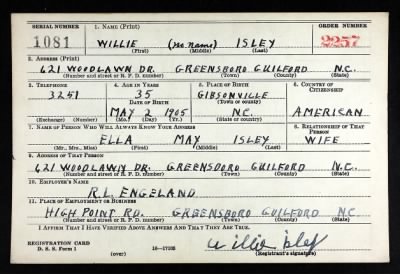 SERIAL NUMBER 1. NAME (Print) ORDER NUMBER
1081 WILLIE (NO NAME) ISLEY 2257
(First) (Middle) (Last)
2. ADDRESS (Print)
621 WOODLAWN DR. GREENSBORO GUILFORD N.C.
(Number and street or R. F. D. number) (Town) (County) (State)
3. TELEPHONE 4. AGE IN YEARS 5. PLACE OF BIRTH 6. COUNTRY OF CITIZENSHIP
3251 35 GIBSONVILLE
DATE OF BIRTH (Town or county)
MAY 2 1905 N.C. AMERICAN
(Exchange) (Number) (Mo.) (Day) (Yr.) (State or country)
7. NAME OF PERSON WHO WILL ALWAYS KNOW YOUR ADDRESS 8. RELATIONSHIP OF THAT PERSON
ELLA MAY ISLEY WIFE
(Mr., Mrs., Miss) (First) (Middle) (Last)
9. ADDRESS OF THAT PERSON
621 WOODLAWN DR. GREENSBORO GUILFORD N.C.
(Number and street or R. F. D. number) (Town) (County) (State)
10. EMPLOYER'S NAME
R.L. ENGELAND
11. PLACE OF EMPLOYMENT OR BUSINESS
HIGH POINT RD. GREENSBORO GUILFORD N.C.
(Number and street or R. F. D. number) (Town) (County) (State)
I AFFIRM THAT I HAVE VERIFIED ABOVE ANSWERS AND THAT THEY ARE TRUE.
REGISTRATION CARD
D. S. S. Form 1 16-17105 Willie Isley
(over) (Registrant's signature)